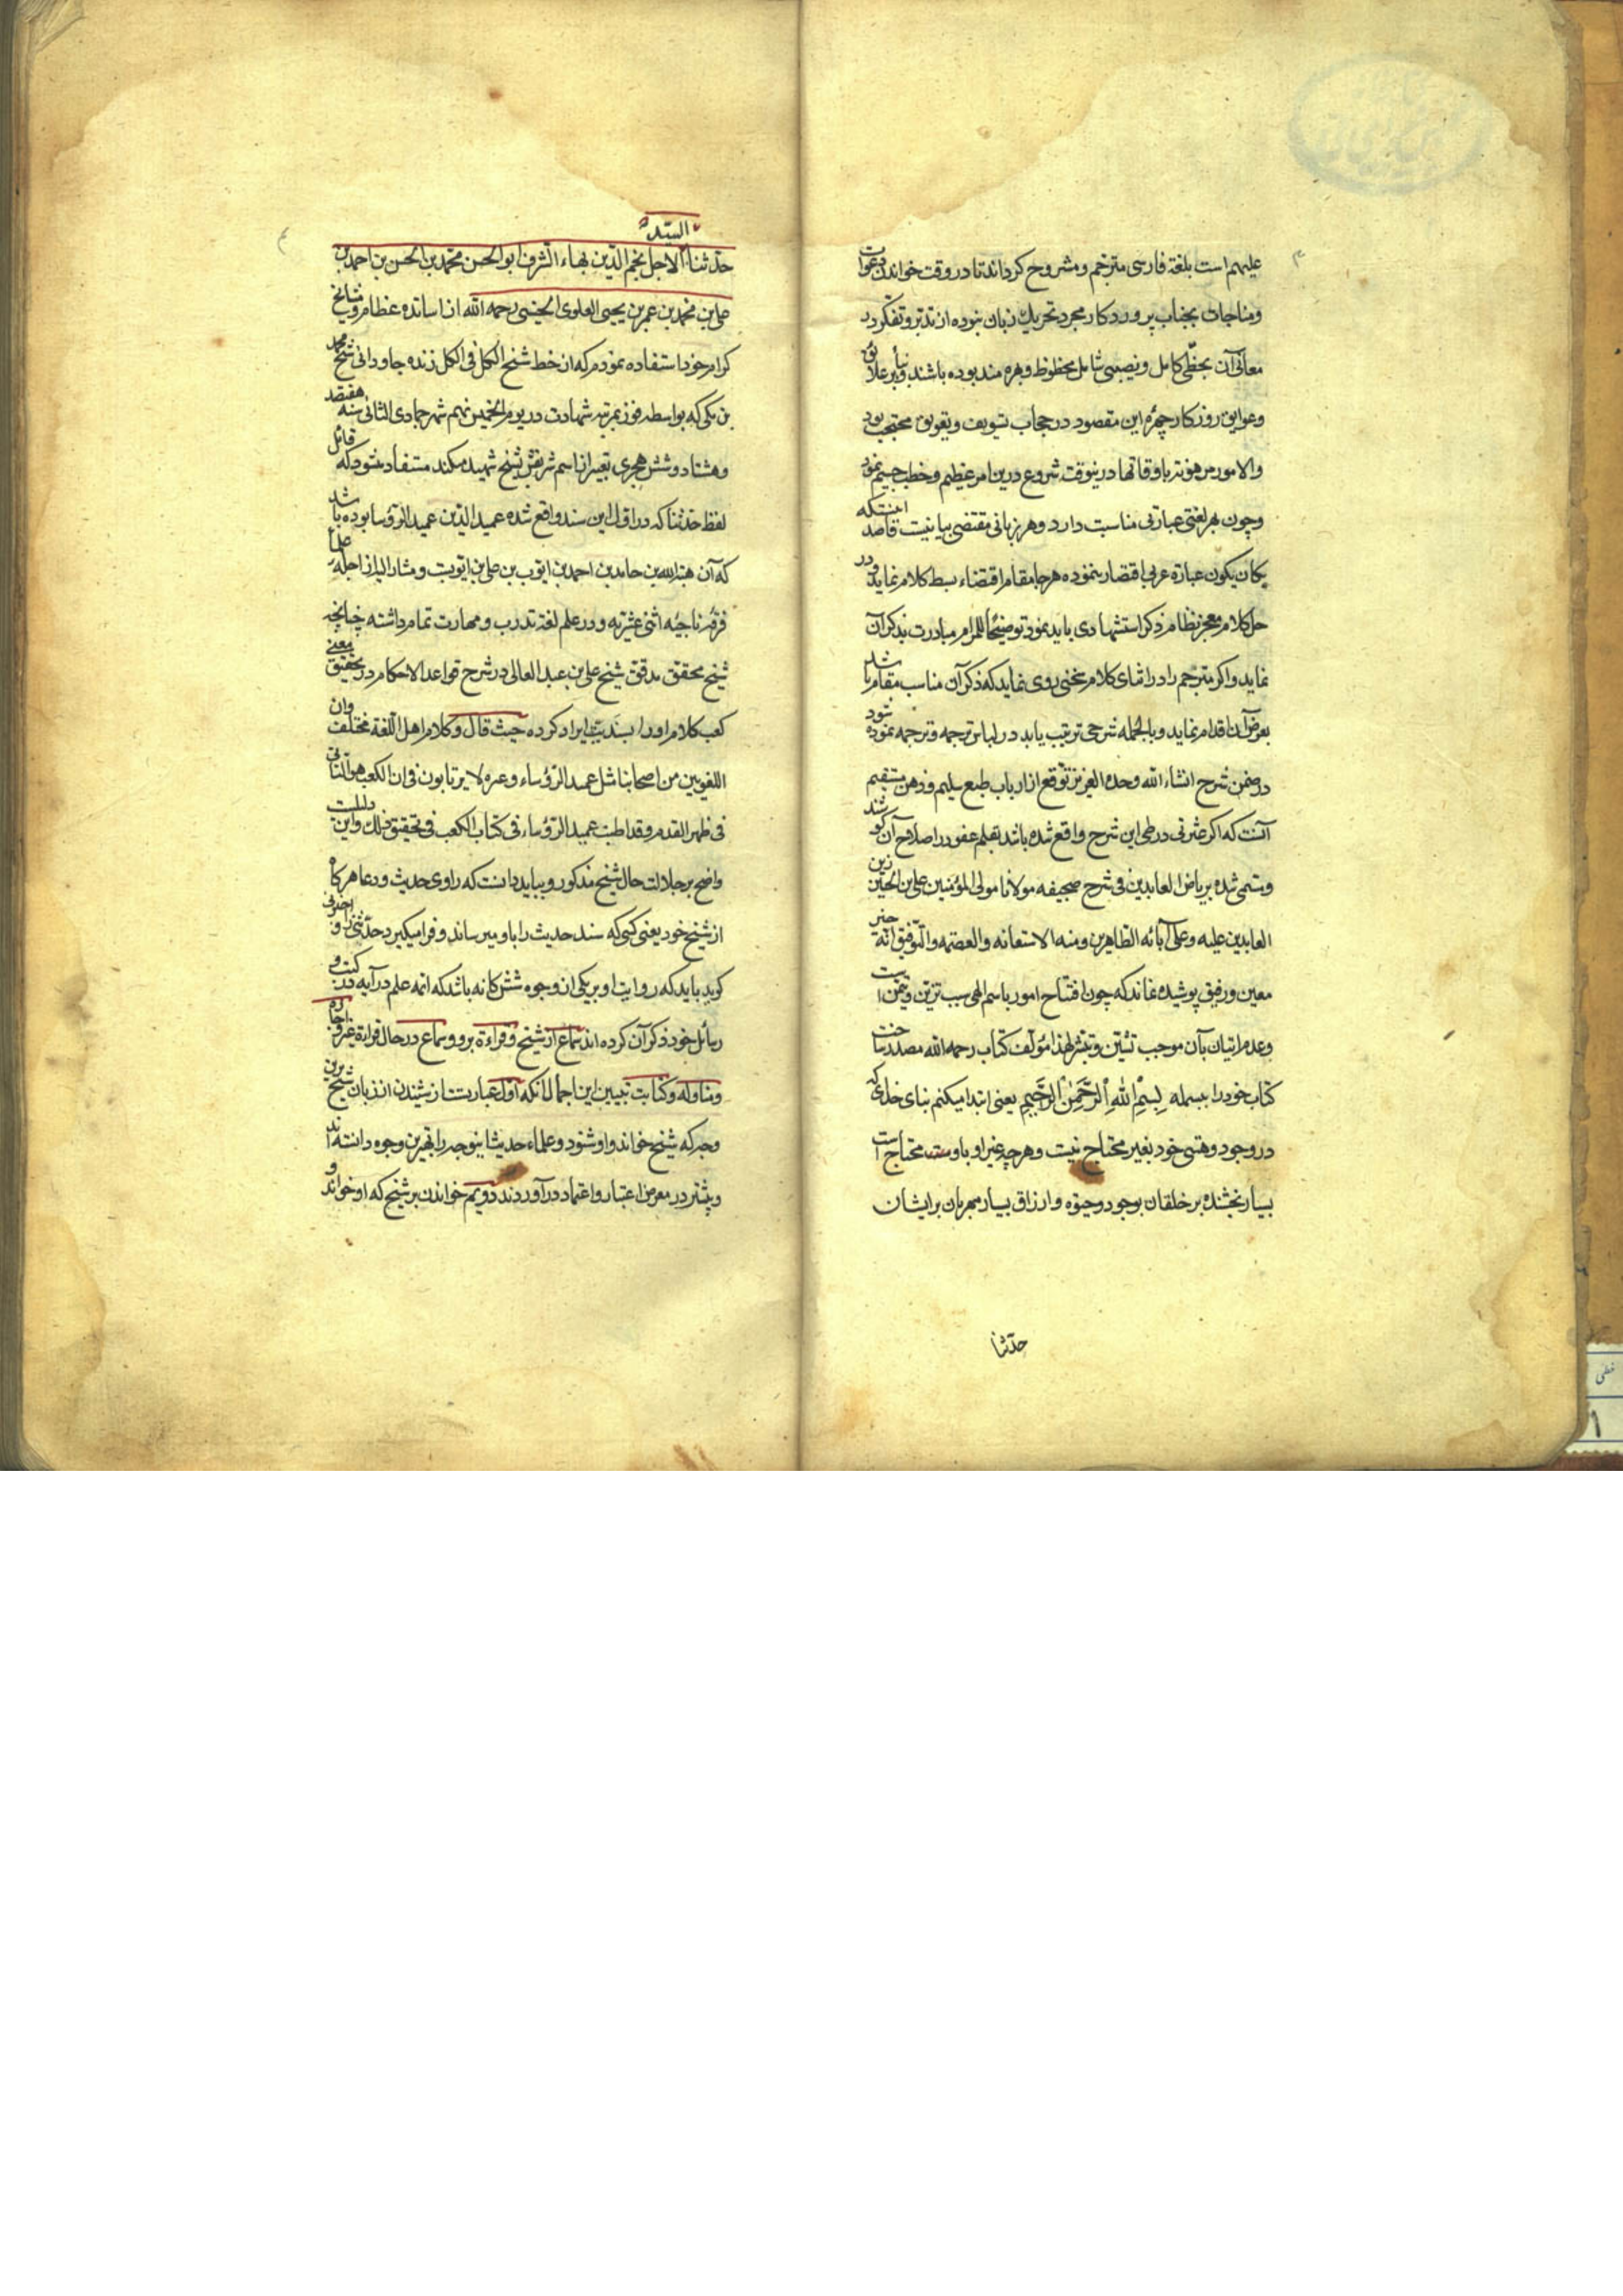 علیهم است بلغة فارسی مترجم و مشروح کرداند تا در وقت خواندن دعوات
و مناجات بجناب پروردکار مجرد تحریك زبان نبوده از تدبر و تفکر در
معانی آن بحظی کامل و نصیبی شامل محظوظ و بهره مند بوده باشند و بنا بر علائق
و عوایق روزکار چهره این مقصود در حجاب تسویف و تعویق محتجب بود
والامور مرهونة باوقاتها درینوقت شروع درین امر عظیم و خطب جسیم نمود
و چون هر لغتی عبارتی مناسبت دارد و هر زبانی مقتضی بیانیست قاصد اینستکه
بکان یکون عبارة عربی اقتصار ننموده هر جا مقام اقتضاء بسط کلام نماید و در
حل کلام معجز نظام ذکر استشهادی باید نمود توضیحا للمرام مبادرت بذکر آن
نماید و اکر مترجم را در اثنای کلام سخنی روی نماید که ذکر آن مناسب مقام باشد
بعرض آن اقدام نماید و بالجمله شرحی ترتیب یابد در لباس ترجمه و ترجمه نموده شود
در ضمن شرح انشاء الله وحده العزیز توقع از ارباب طبع سلیم و ذهن مستقیم
آنست که اکر عثرتی در طی این شرح واقع شده باشد بقلم عفو در اصلاح آن کوشند
و مسمی شده بریاض العابدین فی شرح صحیفه مولانا مولی المؤمنین علی بن الحسین زین
العابدین علیه و علی آبائه الطاهرین ومنه الاستعانه والعصمه والتوفیق انه خیر
معین و رفیق پوشیده نماند که چون افتتاح امور باسم الهی سبب تزیین و تیمن است
و عدم اتیان بآن موجب تشئین و تبتر لهذا مؤلف کتاب رحمه الله مصدر ساخت
کتاب خود را ببسمله بِسْمِ اللهِ الرَّحْمٰنِ الرَّحِیمِ یعنی ابتدا میکنم بنام خدای که
در وجود و هستی خود بغیر محتاج نیست و هر چه غیر او باوست محتاج است
بسیار بخشنده بر خلقان بوجود و حیوة و ارزاق بسیار مهربان برایشان
حدثنا
السید
حدثنا الاجل نجم الدین بهاء الشرف ابو الحسن محمد بن الحسن بن احمد بن
علی بن محمد بن عمر بن یحیی العلوی الحسینی رحمه الله از اساتذه عظام و مشایخ
کرام خود استفاده نمودم که از خط شیخ الکل فی الکل زنده جاودانی شیخ محمد
بن مکی که بواسطه فوز بمرتبه شهادت در یوم الخمیس نهم شهر جمادی الثانی سنه هفتصد
و هشتاد و شش هجری تعبیر از اسم شریفش بشیخ شهید میکنند مستفاد میشود که قائل
لفظ حدثنا که در اول این سند واقع شده عمید الدین عمید الرؤسا بوده باشد
که آن هبة الله بن حامد بن احمد بن ایوب بن علی بن ایوبست و مشار الیه از اجله علماء
فرقه ناجیه اثنی عشریه و در علم لغة تدرب و مهارت تمام داشته چنانچه
شیخ محقق مدقق شیخ علی بن عبد العالی در شرح قواعد الاحکام در تحقیق معنی
کعب کلام او را بسندیت ایراد کرده حیث قال و کلام اهل اللغة مختلف وان
اللغویین من اصحابنا مثل عمید الرؤساء و غیره لا یرتابون فی ان الکعب هو الناتی
فی ظهر القدم وقد اطنب عمید الرؤساء فی کتاب الکعب فی تحقیق ذلك و این دلیلیست
واضح بر جلالت حال شیخ مذکور و بباید دانست که راوی حدیث و دعا هر کاه
از شیخ خود یعنی کسی که سند حدیث را باو میرساند و فرا میکیرد حدثنی و اخبرنی
کوید باید که روایت او بر یکی از وجوه شش کانه باشد که ائمه علم درایه در کتب و
رسائل خود ذکر آن کرده اند سماع از شیخ و قراءة برو و سماع در حال قراءة غیر و اجازه
و مناوله و کتابت تبیین این اجمال انکه اول عبارتست از شنیدن از زبان شیخ برین
وجه که شیخ خواند و او شنود و علماء حدیث اینوجه را بهترین وجوه دانسته اند
و بیشتر در معرض اعتبار و اعتماد در آوردند دویم خواندن بر شیخ که او خواند و
خطی
۱